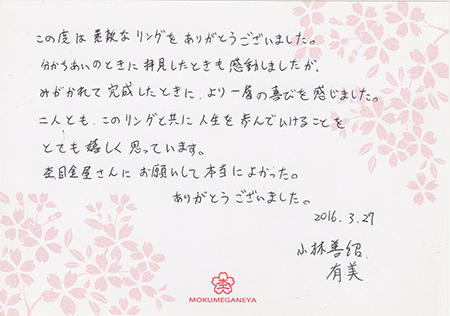 この度は素敵なリングをありがとうございました。
分かちあいのときに拝見したときも感動しましたが、
みがかれて完成したときに、より一層の喜びを感じました。
二人とも、このリングと共に人生を歩んでいけることを
とても嬉しく思っています。
杢目金屋さんにお願いして本当によかった。
ありがとうございました。
2016.3.27
小林善紹
有美
杢
MOKUMEGANEYA